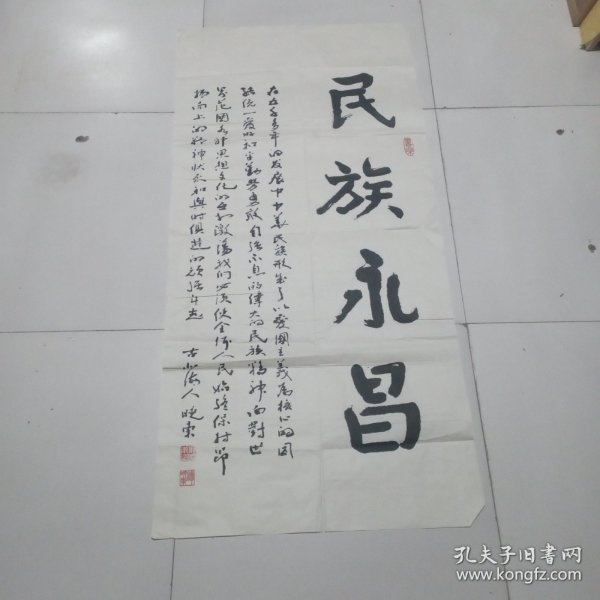 民族永昌
在五千多年的发展中中华民族形成了以爱国主义为核心的团
结统一爱好和平勤劳勇敢自强不息的伟大的民族精神面对世
界范围各种思想文化的互相激荡我们必须使全体人民始终保持昂
扬向上的精神状态和与时俱进的顽强斗志
古北海人晓东
孔夫子旧书网
www.kongfz.com